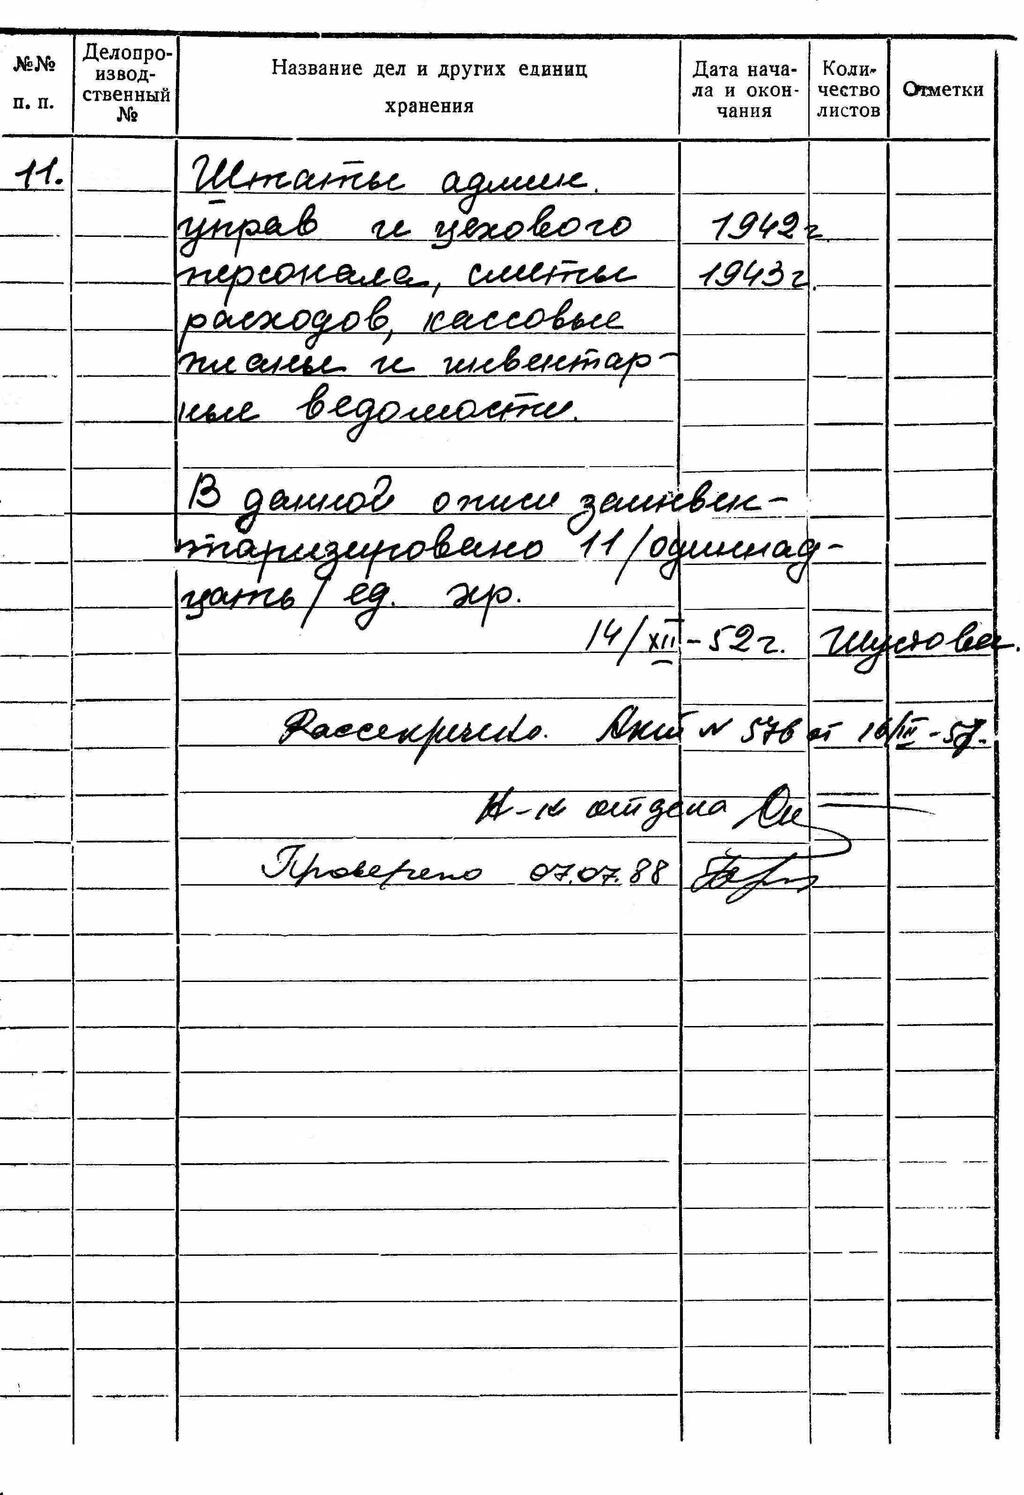 №№ п. п.
Делопро-
извод-
ственный
№
Название дел и других единиц
хранения
Дата нача-
ла и окон-
чания
Коли-
чество
листов
Отметки
11. Штаты админ.
управ и цехового 1942 г.
персонала, сметы 1943 г.
расходов, кассовые
планы и инвентар-
ные ведомости.
В данной описи заинвен-
таризировано 11 /одиннад-
цать/ ед. хр.
14/XII-52 г. Шустова.
Рассекречено. Акт № 576 от 16/III-57.
Н-к отдела
Проверено 07.07.88